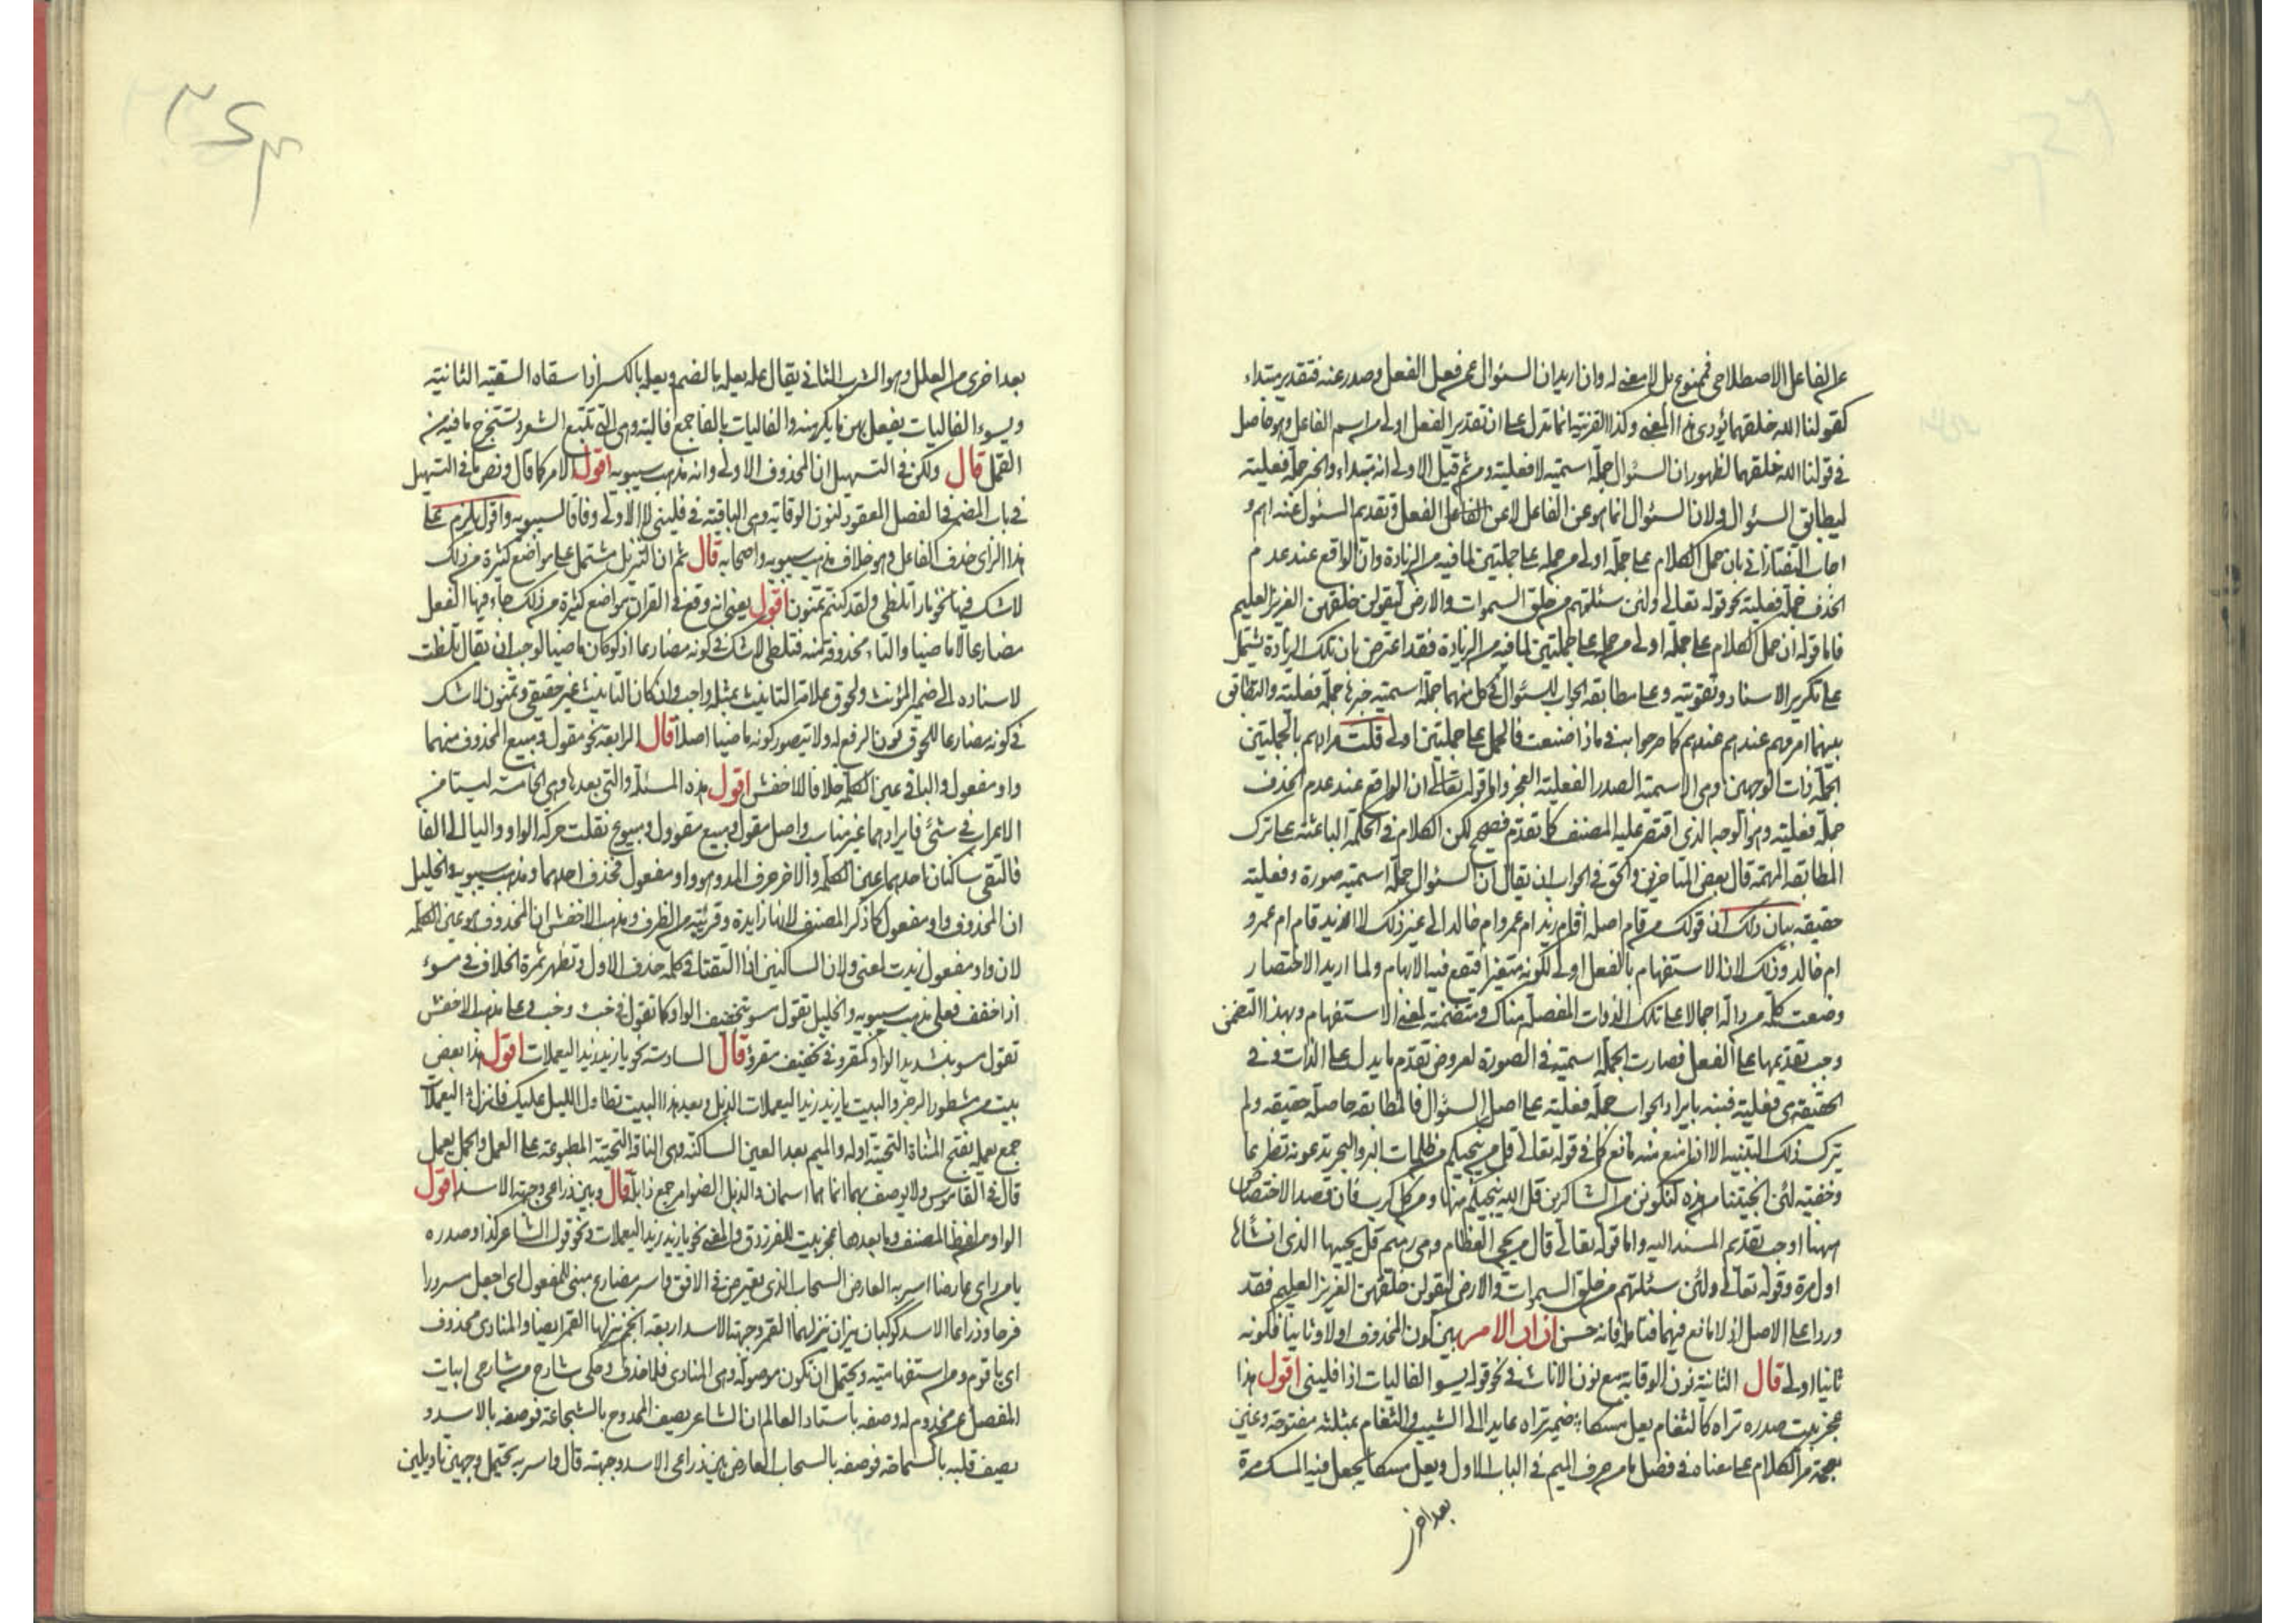 عن الفاعل الاصطلاحى فممنوع بل لا معنى له وان اريد ان السئوال عمن فعل الفعل وصدر عنه فتقدير مبتداء
كقولنا الله خلقهما يؤدى هذا المعنى وكذا القرينة انما تدل على ان تقدير الفعل اولى من اسم الفاعل وهو حاصل
فى قولنا الله خلقهما لظهور ان السئوال جملة اسمية لا فعلية ومن ثم قيل الاولى انه مبتداء والخبر جملة فعلية
ليطابق السئوال ولان السئوال انما هو عن الفاعل لا عن الفعل وتقديم المسئول عنه اهم و
اجاب التفتازانى بان حمل الكلام على جملة اولى من حمله على جملتين لما فيه من الزيادة وان الواقع عند عدم
الحذف جملة فعلية نحو قوله تعالى ولئن سئلتهم من خلق السموات والارض ليقولن خلقهن العزيز العليم
فاما قوله ان حمل الكلام على جملة اولى من حمله على جملتين لما فيه من الزيادة فقد اعترض بان تلك الزيادة يشتمل
على تكرير الاسناد وتقويته وعلى مطابقة الجواب للسئوال فى كل منهما جملة اسمية خبرها جملة فعلية والتطابق
بينهما امر مهم عندهم كما صرحوا به فى ماذا صنعت فالحمل على جملتين اولى قلت مرادهم بالجملتين
الجملة ذات الوجهين وهى الاسمية الصدر الفعلية العجز واما قوله تعالى ان الواقع عند عدم الحذف
جملة فعلية وهو الوجه الذى اقتصر عليه المصنف كما تقدم فصحيح لكن الكلام فى الحكمة الباعثة على ترك
المطابقة المهمة قال بعض المتاخرين والحق فى الجواب ان يقال ان السئوال جملة اسمية صورة وفعلية
حقيقة بيان ذلك ان قولك من قام اصله اقام زيد ام عمرو ام خالد الى غير ذلك لا ازيد قام ام عمرو
ام خالد وذلك لان الاستفهام بالفعل اولى لكونه متغيرا فيقع فيه الابهام ولما اريد الاختصار
وضعت كلمة من دالة اجمالا على تلك الذوات المفصلة هناك ومتضمنة لمعنى الاستفهام وبهذا التضمن
وجب تقديمها على الفعل فصارت الجملة اسمية فى الصورة لعروض تقدم ما يدل على الذات وفى
الحقيقة هى فعلية فنبه بايراد الجواب جملة فعلية على اصل السئوال فالمطابقة حاصلة حقيقة ولم
يترك ذلك التنبيه الا اذا منع منه مانع كما فى قوله تعالى قل من ينجيكم من ظلمات البر والبحر تدعونه تضرعا
وخفية لئن انجيتنا من هذه لنكونن من الشاكرين قل الله ينجيكم منها ومن كل كرب فان قصد الاختصاص
ههنا اوجب تقديم المسند اليه واما قوله تعالى قال من يحيى العظام وهى رميم قل يحييها الذى انشأها
اول مرة وقوله تعالى ولئن سئلتهم من خلق السموات والارض ليقولن خلقهن العزيز العليم فقد
وردا على الاصل اذ لا مانع فيهما فتامله فانه حسن اذا دار الامر بين كون المحذوف اولا وثانيا فكونه
ثانيا اولى قال الثانية نون الوقاية مع نون الاناث فى نحو قوله يسوء الفاليات اذا فلينى اقول هذا
عجز بيت صدره تراه كالثغام يعل مسكا ضمير تراه عايد الى الشيب والثغام بمثلثة مفتوحة وغين
معجمة مر الكلام على معناه فى فصل ما من حرف الميم فى الباب الاول ويعل مسكا يجعل فيه المسك مرة
بعد اخرى
٣٤٣
بعد اخرى من العلل وهو الشرب الثانى يقال عله يعله بالضم ويعله بالكسر اذا سقاه السقية الثانية
ويسوء الفاليات يفعل بهن ما يكرهنه والفاليات بالفا جمع فالية وهى التى تتبع الشعر وتستخرج ما فيه من
القمل قال ولكن فى التسهيل ان المحذوف الاولى وانه مذهب سيبويه اقول الامر كما قال ونص ما فى التسهيل
فى باب المضمر فى الفصل المعقود لنون الوقاية وهى الباقية فى فلينى لا الاولى وفاقا لسيبويه واقول يلزم على
هذا الراى حذف الفاعل وهو خلاف مذهب سيبويه واصحابه قال ثم ان التنزيل مشتمل على مواضع كثيرة من ذلك
لا شك فيها نحو نارا تلظى ولقد كنتم تمنون اقول يعنى انه وقع فى القران مواضع كثيرة من ذلك جاء فيها الفعل
مضارعا لا ماضيا والتاء محذوفة منه فتلظى لا شك فى كونه مضارعا اذ لو كان ماضيا لوجب ان يقال تلظت
لاسناده الى ضمير المؤنث ولحوق علامة التانيث بمثله واجب وان كان التانيث غير حقيقى وتمنون لا شك
فى كونه مضارعا للحوق نون الرفع له ولا يتصور كونه ماضيا اصلا قال الرابعة نحو مقول ومبيع المحذوف منهما
واو مفعول والباقى عين الكلمة خلافا للاخفش اقول هذه المسئلة والتى بعدها وهى الخامسة ليستا من
الاعراب فى شئ فايرادهما غير مناسب واصل مقول ومبيع مقوول ومبيوع نقلت حركة الواو والياء الى الفا
فالتقى ساكنان احدهما عين الكلمة والاخر حرف المد وهو واو مفعول فحذف احدهما ومذهب سيبويه والخليل
ان المحذوف واو مفعول كما ذكر المصنف لانها زايدة وقريبة من الطرف ومذهب الاخفش ان المحذوف هو عين الكلمة
لان واو مفعول زيدت لمعنى ولان الساكنين اذا التقتا فى كلمة حذف الاول وتظهر ثمرة الخلاف فى مسوء
اذا خفف فعلى مذهب سيبويه والخليل تقول مسو بتخفيف الواو كما تقول فى خبء وخب وعلى مذهب الاخفش
تقول مسو بتشديد الواو كمقرو فى تخفيف مقروء قال السادسة نحو يا زيد زيد اليعملات اقول هذا بعض
بيت من مشطور الرجز والبيت يا زيد زيد اليعملات الذبل وبعد هذا البيت تطاول الليل عليك فانزل اليعملات
جمع يعملة بفتح المثناة التحتية اوله والميم بعد العين الساكنة وهى الناقة النجيبة المطبوعة على العمل والجمل يعمل
قال فى القاموس ولا يوصف بهما انما هما اسمان والذبل الضوامر جمع ذابل قال وبين ذراعى وجبهة الاسد اقول
الواو من لفظ المصنف وما بعدها عجز بيت للفرزدق والمعنى نحو يا زيد زيد اليعملات ونحو قول الشاعر كذا وصدره
يا من راى عارضا اسر به العارض السحاب الذى يعترض فى الافق واسر مضارع مبنى للمفعول اى اجعل مسرورا
فرحا وذراعا الاسد كوكبان نيران ينزلهما القمر وجبهة الاسد اربعة انجم ينزلها القمر ايضا والمنادى محذوف
اى يا قوم ومن استفهامية ويحتمل ان تكون موصولة وهى المنادى فلا حذف وحكى شارح من شارحى ابيات
المفصل عن مخدوم له وصفه باستاد العالم ان الشاعر يصف الممدوح بالشجاعة فوصفه بالاسد و
يصف قلبه بالسماحة فوصفه بالسحاب العارض بين ذراعى الاسد وجبهته قال واسر به يحتمل وجهين تاويلين